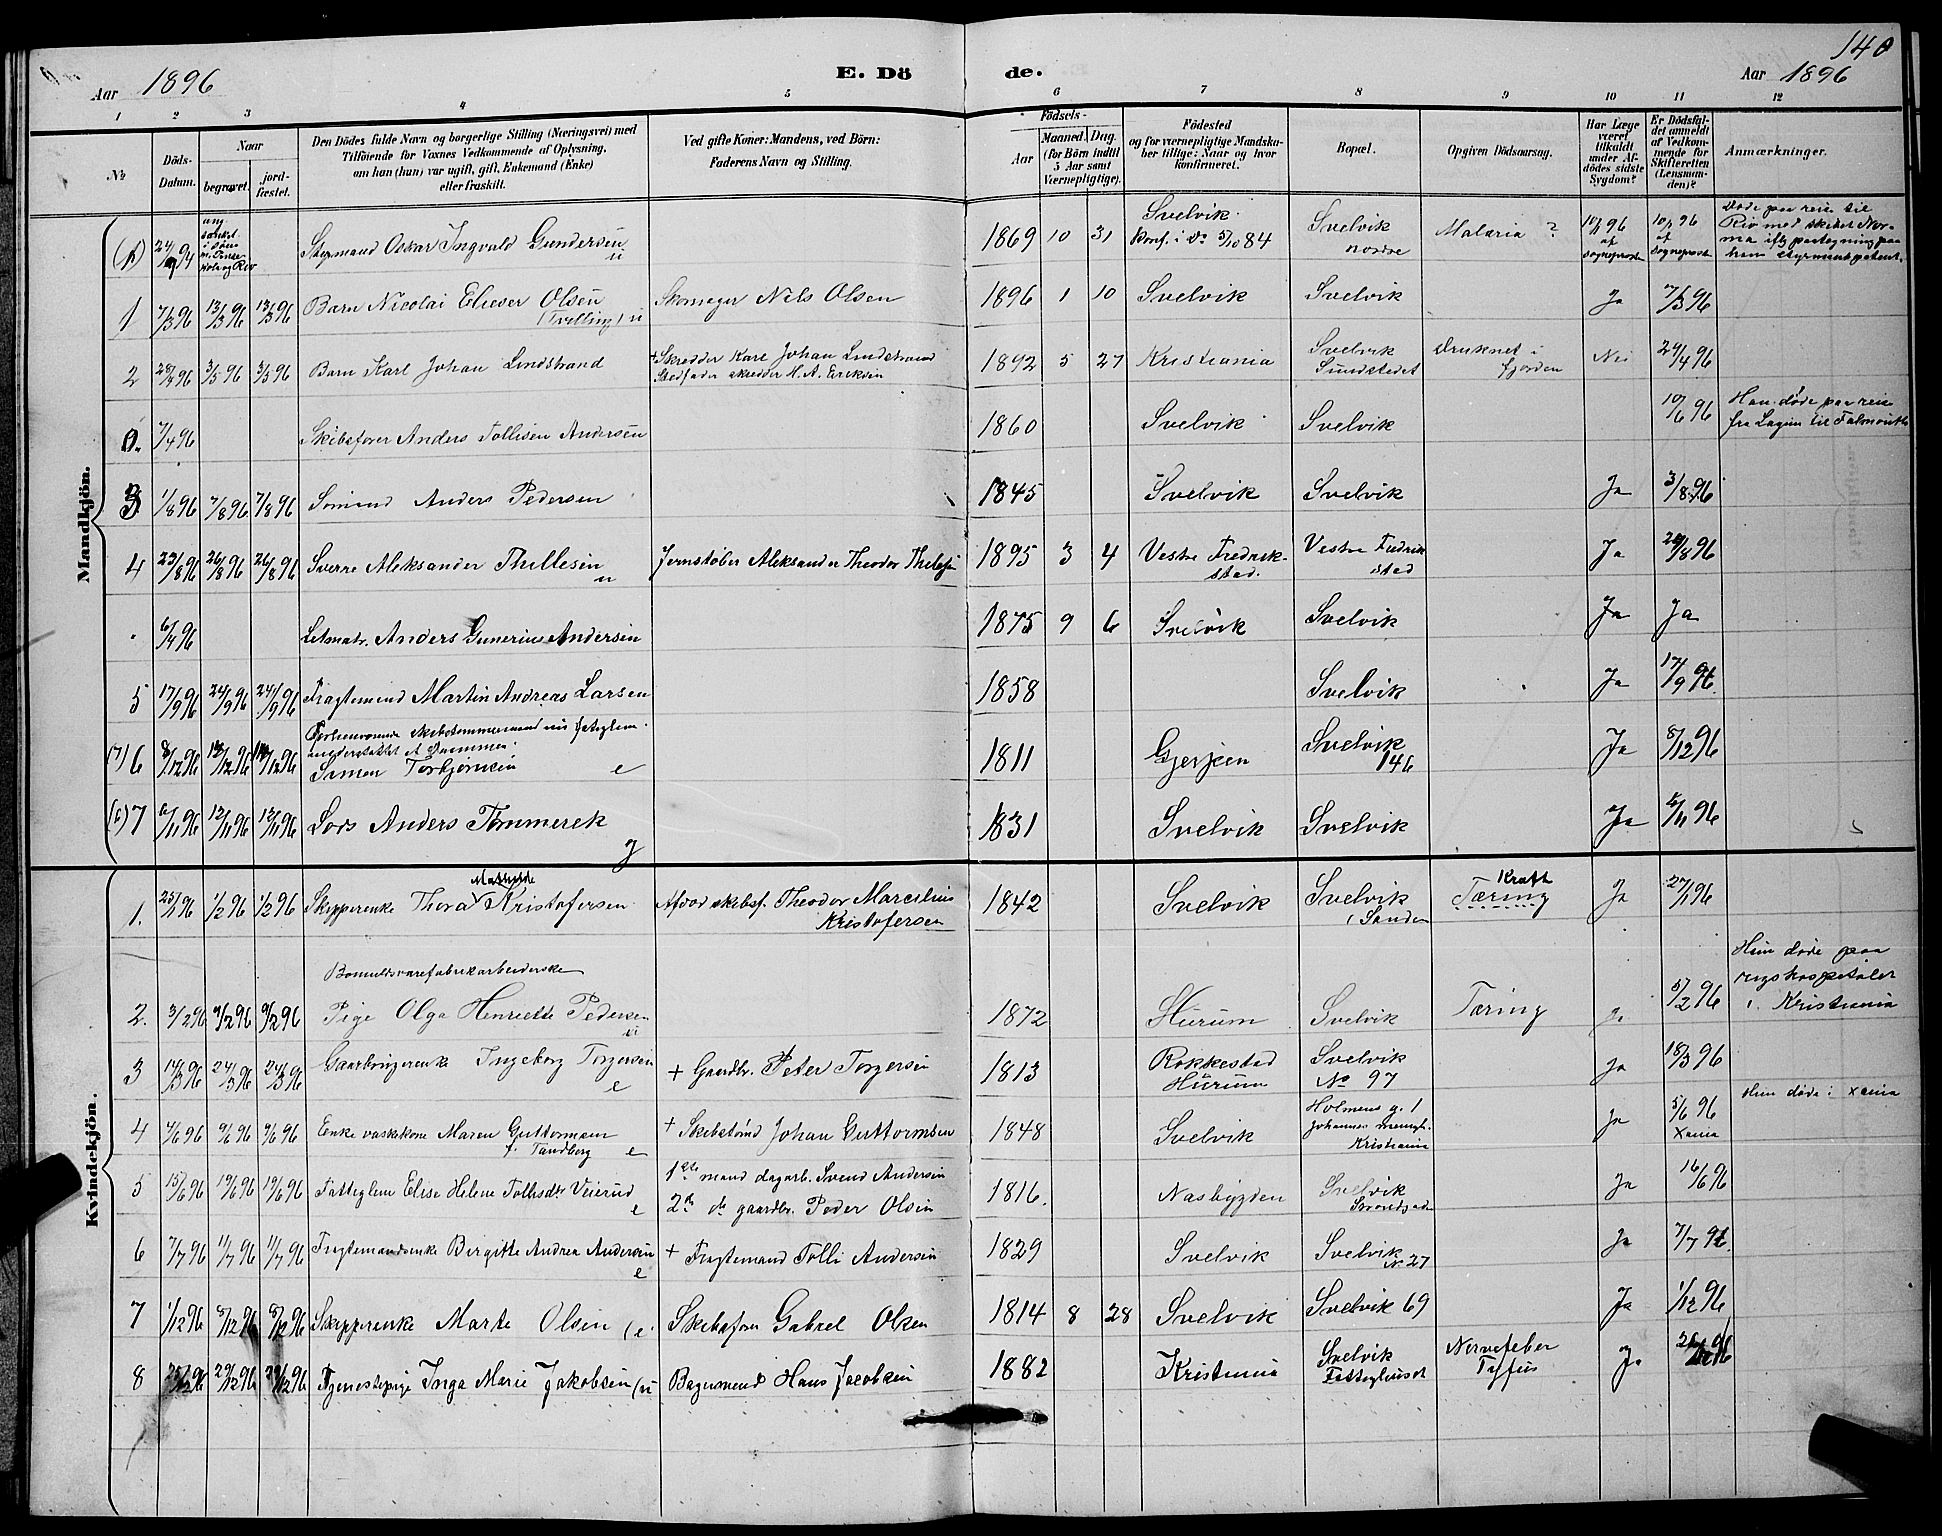 140
Aar 1896 E. Dö de. Aar 1896
1 2 3 4 5 6 7 8 9 10 11 12
№
Döds-
Datum.
Naar
begravet.
jord-
fæstet.
Den Dödes fulde Navn og borgerlige Stilling (Næringsvei) med
Tilföiende for Voxnes Vedkommende af Oplysning,
om han (hun) var ugift, gift, Enkemand (Enke)
eller fraskilt.
Ved gifte Koner: Mandens, ved Börn:
Faderens Navn og Stilling.
Födsels-
Aar
Maaned. Dag.
(for Börn indtil
5 Aar samt
Værnepligtige).
Födested
og for værnepligtige Mandska-
ber tillige: Naar og hvor
konfirmeret.
Bopæl.
Opgiven Dödsaarsag.
Har Læge
været
tilkaldt
under Af-
dödes sidste
Sygdom?
Er Dödsfal-
det anmeldt
af Vedkom-
mende for
Skifteretten
(Lensman-
den)?
Anmærkninger.
Mandkjön.
(1) 24/9 94 Styrmand Oskar Ingvald Gundersen u 1869 10 31 Svelvik. Konf. i Do 5/10 84 Svelvik nordre Malaria? 10/1 96 af sogneprest 10/1 96 af sogneprest Døde paa reise til
Rio med skibet Nor-
ma
1 7/3 96 13/3 96 13/3 96 Barn Nicolai Elieser Olsen (Tvilling) u Skomager Nels Olsen 1896 1 10 Svelvik Svelvik Ja 7/3 96
2 28/4 96 3/5 96 3/5 96 Barn Karl Johan Lindstrand + Skrædder Karl Johan Lindstrand
Stedfader skrædder H. A. Eriksen 1892 5 27 Kristiania Svelvik Sundstedet Druknet i fjorden Nei 29/4 96
0. 7/4 96 Skibsfører Anders Tollisen Andersen 1860 Svelvik Svelvik 10/6 96 Han døde paa reise
fra Lagun til Falmouth
3 1/8 96 7/8 96 7/8 96 Sømand Anders Pedersen 1845 Svelvik Svelvik Ja 3/8 96
4 23/8 96 26/8 96 26/8 96 Sverre Aleksander Thellesen u Jernstøber Aleksander Theodor 1895 3 4 Vestre Fredrik-
stad. Vestre Fredrik
stad Ja 24/8 96
6/4 96 Letmatr. Anders Gunerius Andersen 1875 9 6 Svelvik Svelvik Ja Ja
5 17/9 96 24/9 96 24/9 96 Fragtemand Martin Andreas Larsen 1858 Svelvik Ja 17/9 96.
(7) 6 8/12 96 12/12 96 Forhenværende skibstømmermand nu fattiglem
Simon Torbjørnsen e 1811 Gjerpen Svelvik 146 Ja 8/12 96
(6) 7 6/11 96 12/11 96 12/11 96 Lods Anders Tømmerek g 1831 Svelvik Svelvik Ja 6/11 96
Kvindekjön.
1. 25/1 96 1/2 96 1/2 96 Skipperenke Thora Mathilde Kristofersen Afdød skibsf. Theodor Marcelius
Kristofersen 1842 Svelvik Svelvik Sanden Kraft Tæring Ja 27/1 96
2. 3/2 96 9/2 96 9/2 96 Bomuldsvarefabrikarbeiderske
Pige Olga Henriette Pedersen u 1872 Hurum Svelvik Tæring Ja 5/2 96 Hun døde paa
rigshospitalet
i Kristiania
3 14/3 96 24/3 96 24/3 96 Gaarbrugerenke Ingeborg Torgersen e + Gaardbr. Peter Torgersen 1813 Rakkestad Hurum Svelvik No 97 Ja 18/3 96
4 4/6 96 9/6 96 9/6 96 Enke vaskekone Maren Guttormsen
f. Tandberg e + Skibstømd Johan Guttormsen 1848 Svelvik Holmens g. 1
Johannes menigh.
Kristiania Ja 5/6 96
Xania Hun døde i Xania
5 15/6 96 19/6 96 19/6 96 Fattiglem Elise Helene Tollesdtr Veierud e 1ste mand dagarb. Svend Andersen
2den do gaardbr. Peder Olsen 1816. Næsbygden Svelvik Ja 16/6 96
6 7/7 96 11/7 96 11/7 96 Fragtemandsenke Birgitte Andrea Andersen e + Fragtemand Tolli Andersen 1829 Svelvik Svelvik No 27 Ja 7/7 96.
7 1/12 96 8/12 96 8/12 96 Skipperenke Marte Olsen (e Skibsfører Gabriel Olsen 1814 8 28 Svelvik Svelvik 69 Ja 1/12 96
8 25/12 96 29/12 96 29/12 96 Tjenestepige Inga Marie Jakobsen (u Bagermand Hans Jacobsen 1882 Kristiania Svelvik Fattighuset Nervefeber Tyfus Ja